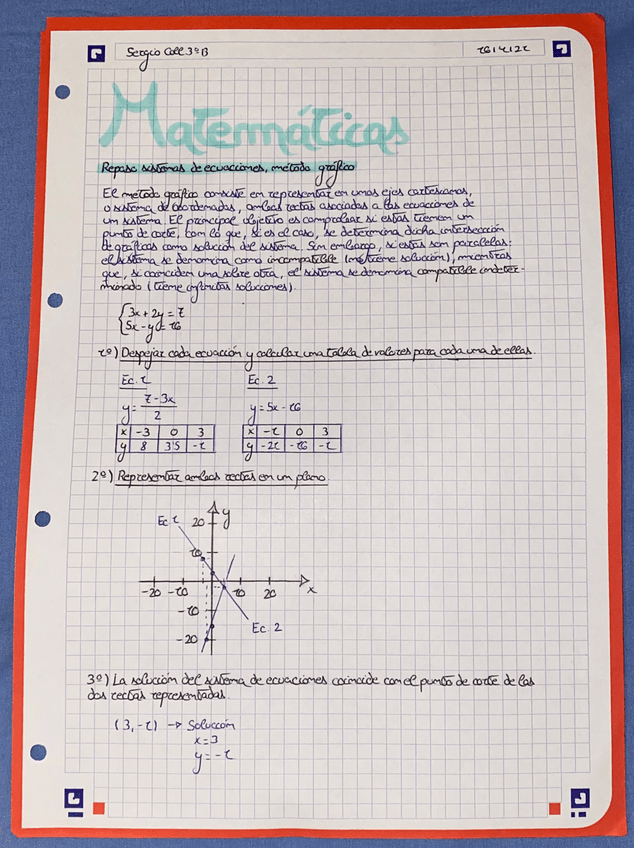 Sergio Coll 3ºB
16/4/21
Matemáticas
Repaso sistemas de ecuaciones, método gráfico
El método gráfico consiste en representar en unos ejes cartesianos,
o sistema de coordenadas, ambas rectas asociadas a las ecuaciones de
un sistema. El principal objetivo es comprobar si estas tienen un
punto de corte, con lo que, si es el caso, se determina dicha intersección
de gráficas como solución del sistema. Sin embargo, si estas son paralelas:
el sistema se denomina como incompatible (no tiene solución), mientras
que, si coinciden una sobre otra, el sistema se denomina compatible indeter-
minado (tiene infinitas soluciones).
3x+2y=7
5x-y=16
1º) Despejar cada ecuación y calcular una tabla de valores para cada una de ellas.
Ec. 1 Ec. 2
y= 7-3x / 2 y=5x-16
x -3 0 3 x -1 0 3
y 8 3'5 -1 y -21 -16 -1
2º) Representar ambas rectas en un plano.
Ec. 1 20 y
10
-20 -10 10 20 x
-10
Ec. 2
-20
3º) La solución del sistema de ecuaciones coincide con el punto de corte de las
dos rectas representadas.
(3,-1) → Solución
x=3
y=-1